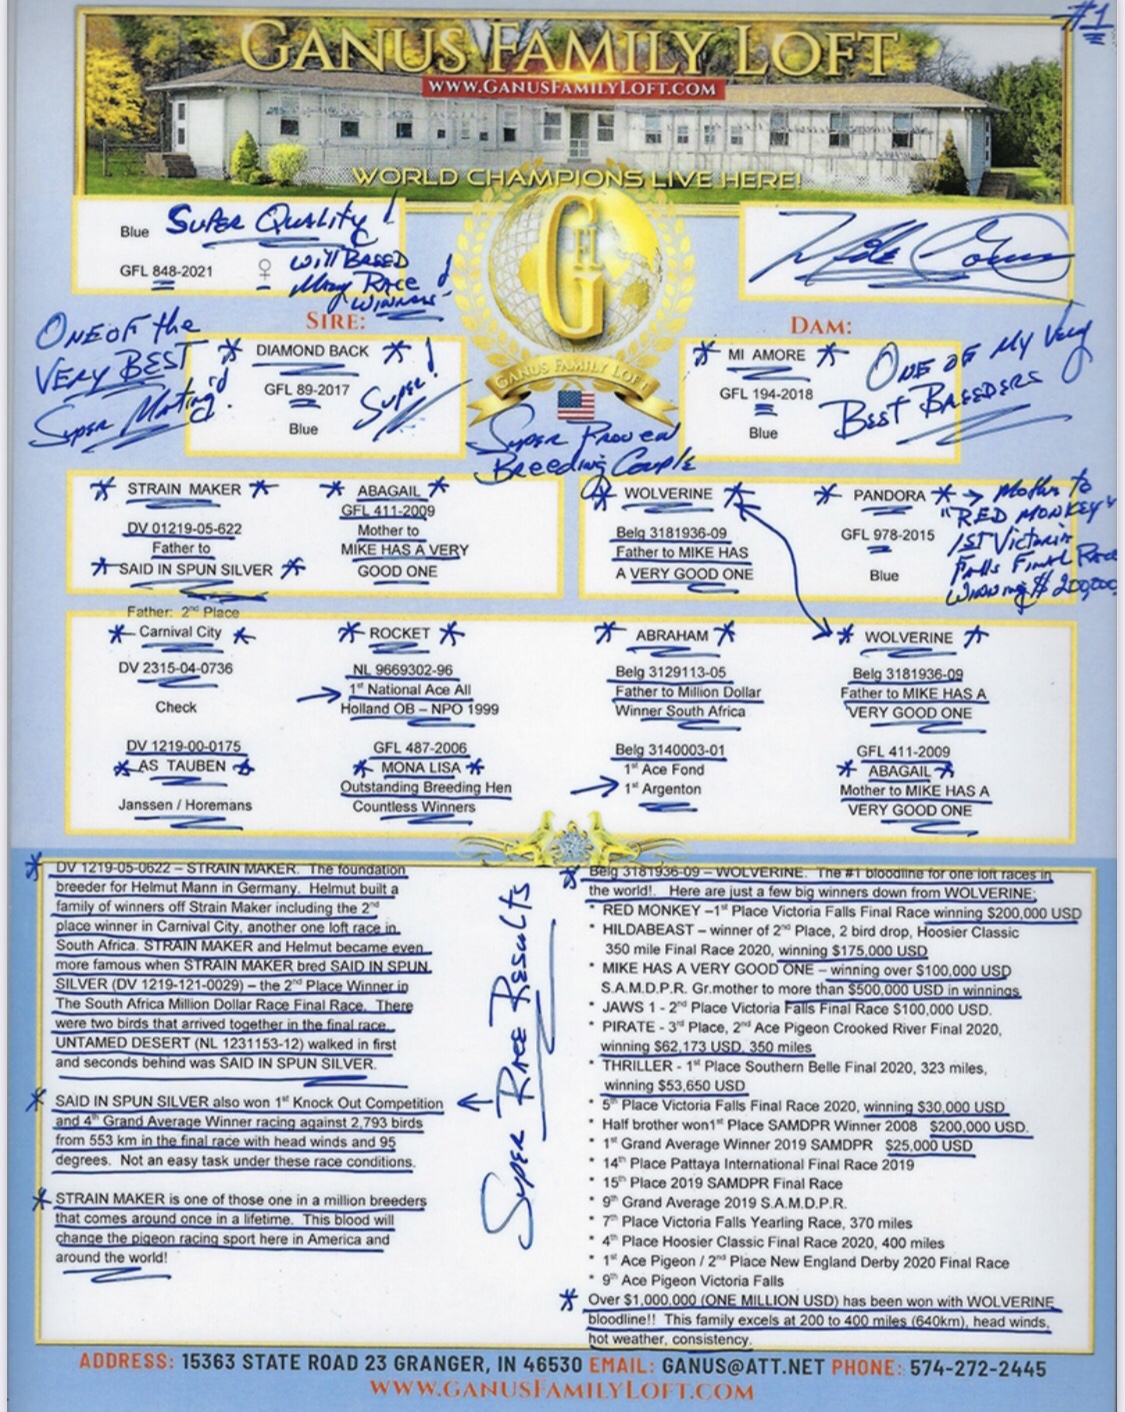 #1
GANUS FAMILY LOFT
WWW.GANUSFAMILYLOFT.COM
WORLD CHAMPIONS LIVE HERE!
Blue
Super Quality!
GFL 848-2021 ♀
Will Breed
Many Race
Winners!
G
GANUS FAMILY LOFT
SIRE:
One of the
Very Best
Super Mating!
* DIAMOND BACK *
GFL 89-2017
Blue
Super!
DAM:
* MI AMORE *
GFL 194-2018
Blue
One of My Very
Best Breeders
Super Proven
Breeding Couple
* STRAIN MAKER *
DV 01219-05-622
Father to
* SAID IN SPUN SILVER *
* ABAGAIL *
GFL 411-2009
Mother to
MIKE HAS A VERY
GOOD ONE
* WOLVERINE *
Belg 3181936-09
Father to MIKE HAS
A VERY GOOD ONE
* PANDORA *
GFL 978-2015
Blue
→ Mother to
"RED MONKEY"
1st Victoria
Falls Final Race
Winning $200,000
Father: 2nd Place
* Carnival City *
DV 2315-04-0736
Check
* ROCKET *
NL 9669302-96
→ 1st National Ace All
Holland OB – NPO 1999
* ABRAHAM *
Belg 3129113-05
Father to Million Dollar
Winner South Africa
* WOLVERINE *
Belg 3181936-09
Father to MIKE HAS A
VERY GOOD ONE
DV 1219-00-0175
* AS TAUBEN *
Janssen / Horemans
GFL 487-2006
* MONA LISA *
Outstanding Breeding Hen
Countless Winners
Belg 3140003-01
1st Ace Fond
→ 1st Argenton
GFL 411-2009
* ABAGAIL *
Mother to MIKE HAS A
VERY GOOD ONE
* DV 1219-05-0622 – STRAIN MAKER. The foundation
breeder for Helmut Mann in Germany. Helmut built a
family of winners off Strain Maker including the 2nd
place winner in Carnival City, another one loft race in
South Africa. STRAIN MAKER and Helmut became even
more famous when STRAIN MAKER bred SAID IN SPUN
SILVER (DV 1219-121-0029) – the 2nd Place Winner in
The South Africa Million Dollar Race Final Race. There
were two birds that arrived together in the final race.
UNTAMED DESERT (NL 1231153-12) walked in first
and seconds behind was SAID IN SPUN SILVER.
* SAID IN SPUN SILVER also won 1st Knock Out Competition
and 4th Grand Average Winner racing against 2,793 birds
from 553 km in the final race with head winds and 95
degrees. Not an easy task under these race conditions.
* STRAIN MAKER is one of those one in a million breeders
that comes around once in a lifetime. This blood will
change the pigeon racing sport here in America and
around the world!
Super Race Results
* Belg 3181936-09 – WOLVERINE. The #1 bloodline for one loft races in
the world!. Here are just a few big winners down from WOLVERINE;
* RED MONKEY –1st Place Victoria Falls Final Race winning $200,000 USD
* HILDABEAST – winner of 2nd Place, 2 bird drop, Hoosier Classic
350 mile Final Race 2020, winning $175,000 USD
* MIKE HAS A VERY GOOD ONE – winning over $100,000 USD
S.A.M.D.P.R. Gr.mother to more than $500,000 USD in winnings
* JAWS 1 - 2nd Place Victoria Falls Final Race $100,000 USD.
* PIRATE - 3rd Place, 2nd Ace Pigeon Crooked River Final 2020,
winning $62,173 USD, 350 miles
* THRILLER - 1st Place Southern Belle Final 2020, 323 miles,
winning $53,650 USD
* 5th Place Victoria Falls Final Race 2020, winning $30,000 USD
* Half brother won1st Place SAMDPR Winner 2008 $200,000 USD.
* 1st Grand Average Winner 2019 SAMDPR $25,000 USD
* 14th Place Pattaya International Final Race 2019
* 15th Place 2019 SAMDPR Final Race
* 9th Grand Average 2019 S.A.M.D.P.R.
* 7th Place Victoria Falls Yearling Race, 370 miles
* 4th Place Hoosier Classic Final Race 2020, 400 miles
* 1st Ace Pigeon / 2nd Place New England Derby 2020 Final Race
* 9th Ace Pigeon Victoria Falls
* Over $1,000,000 (ONE MILLION USD) has been won with WOLVERINE
bloodline!! This family excels at 200 to 400 miles (640km), head winds,
hot weather, consistency.
ADDRESS: 15363 STATE ROAD 23 GRANGER, IN 46530 EMAIL: GANUS@ATT.NET PHONE: 574-272-2445
WWW.GANUSFAMILYLOFT.COM